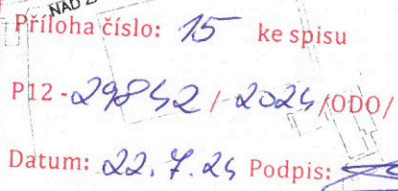 NAD Z
Příloha číslo: 15 ke spisu
P12 - 29842 / 2024 /ODO/
Datum: 22. 7. 24 Podpis: